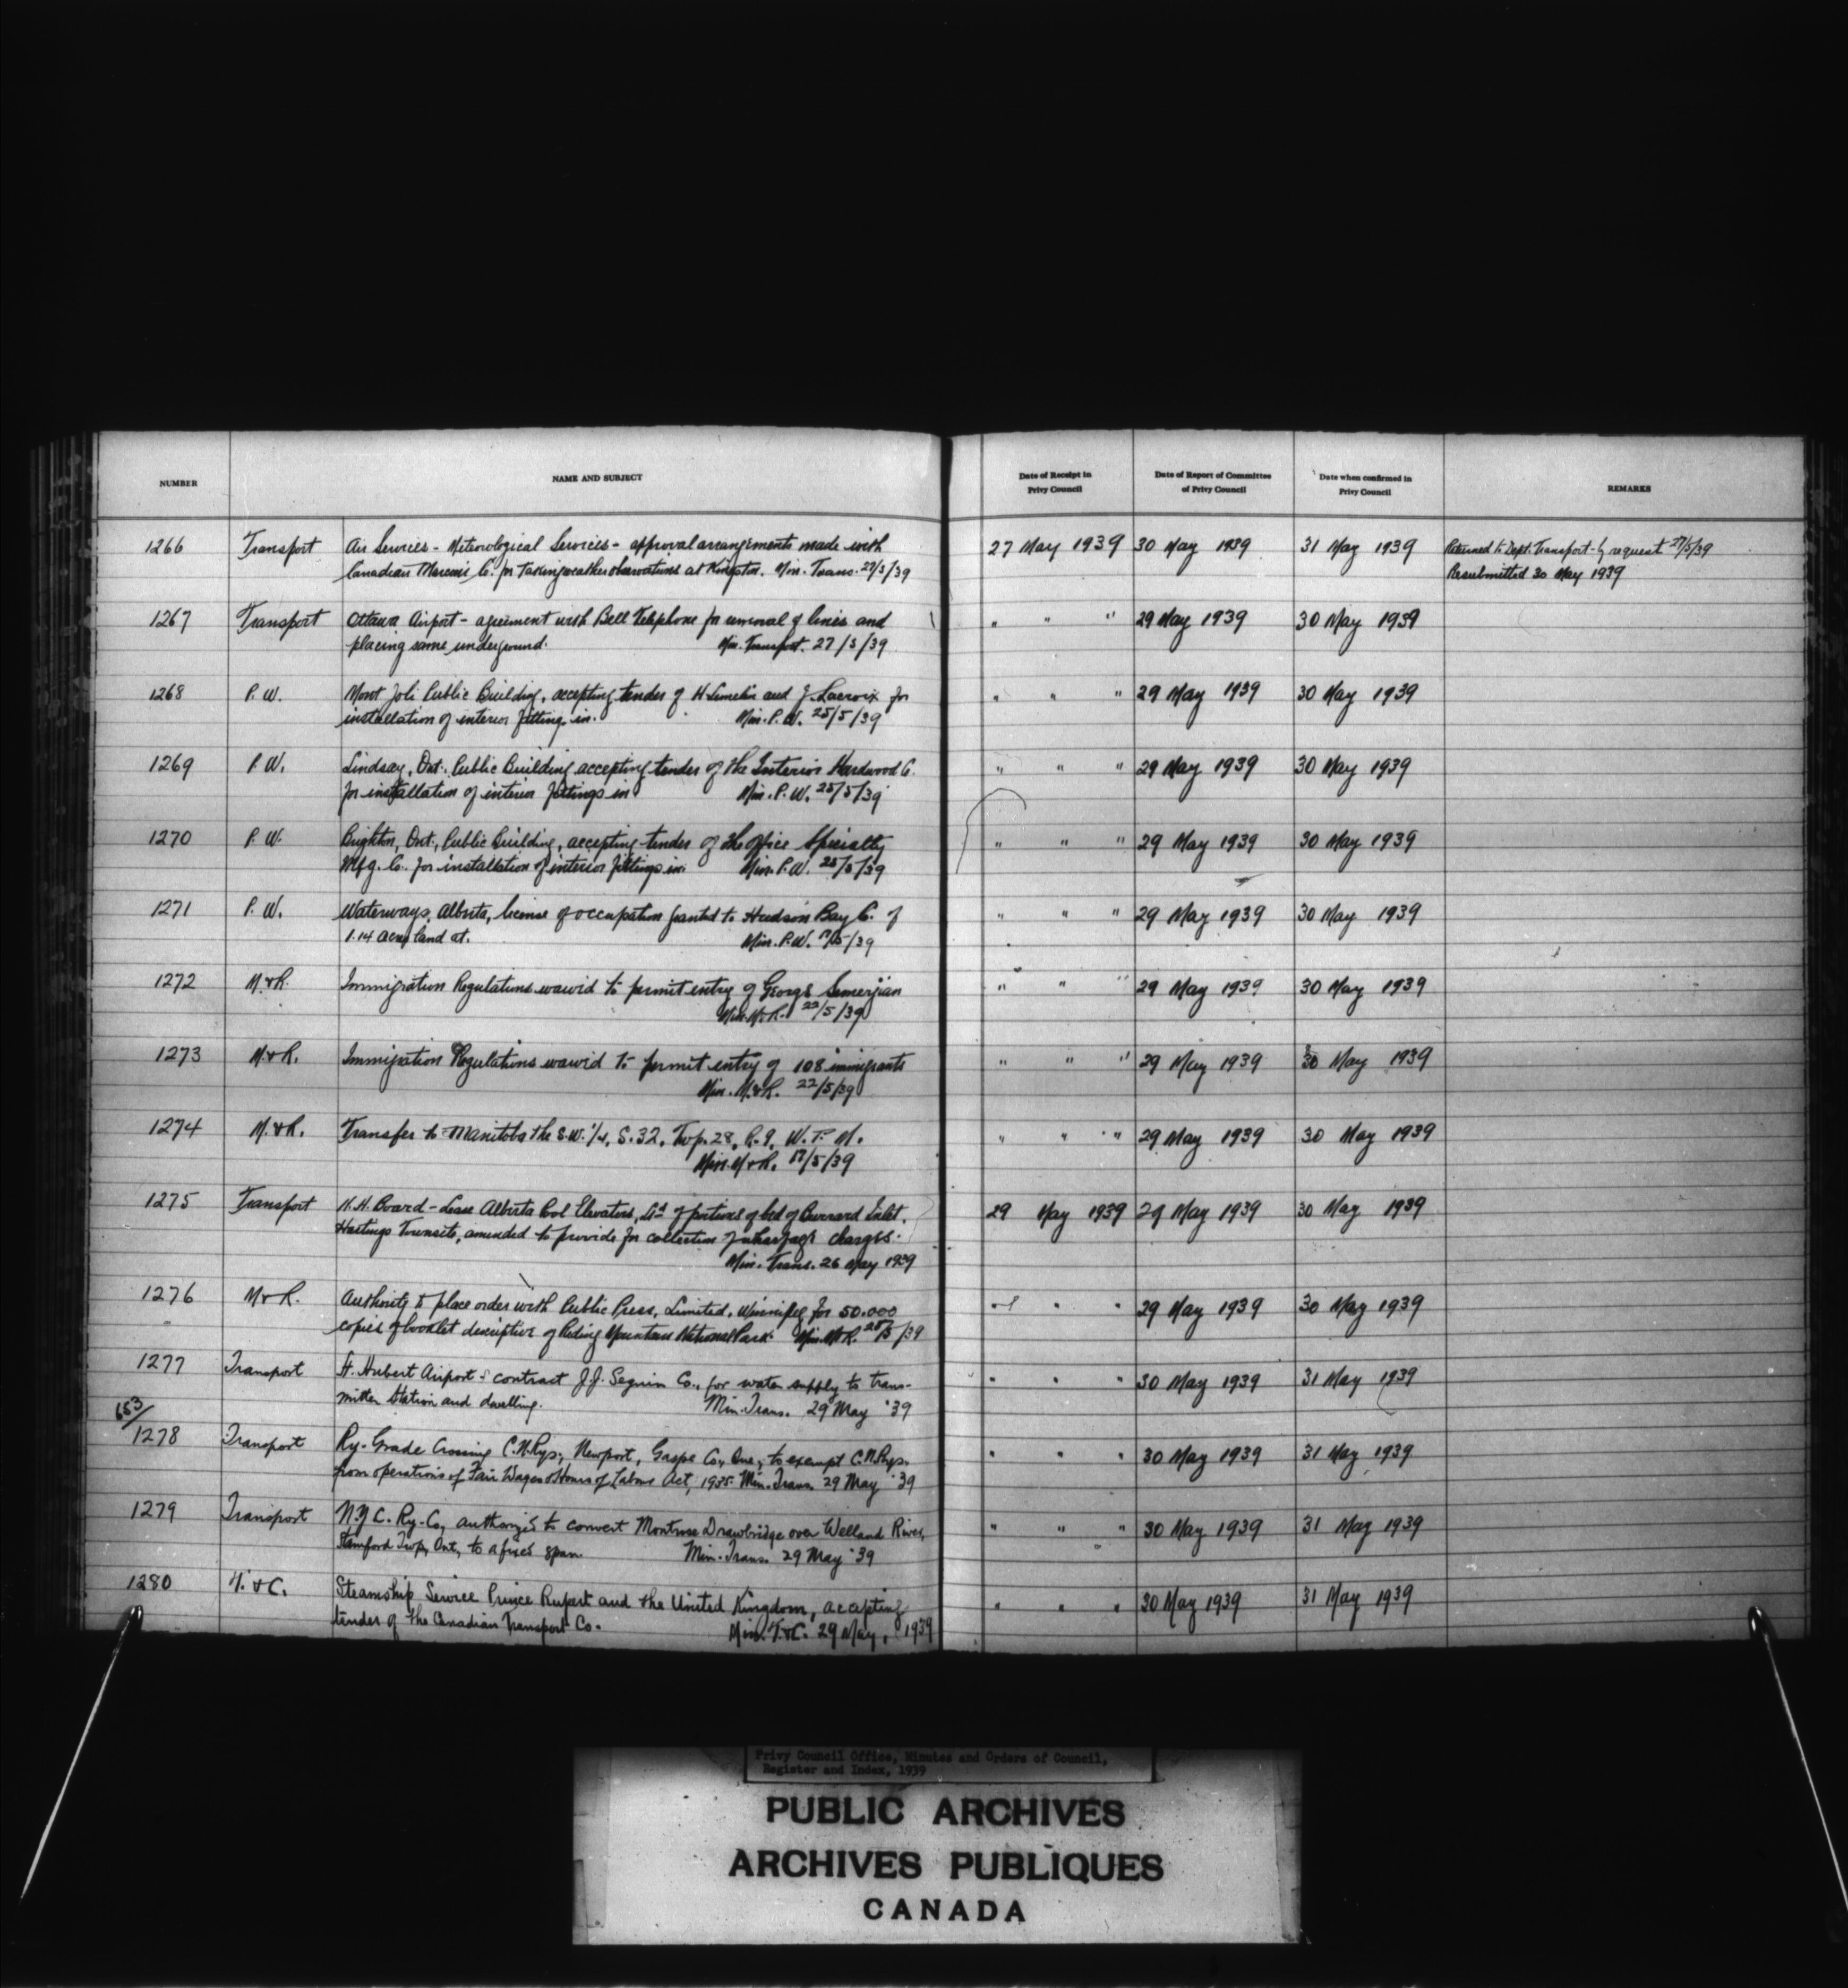 NUMBER
NAME AND SUBJECT
Date of Receipt in
Privy Council
Date of Report of Committee
of Privy Council
Date when confirmed in
Privy Council
REMARKS
1266 Transport Air Services - Meteorological Services - approval arrangements made with 27 May 1939 30 May 1939 31 May 1939 Returned to Dept. Transport - by request 27/5/39
Canadian Marconi Co. for taking weather observations at Kingston. Min. Trans. 27/5/39 Resubmitted 30 May 1939
1267 Transport Ottawa Airport - agreement with Bell Telephone for removal of lines and " " " 29 May 1939 30 May 1939
placing same underground. Min. Transport. 27/5/39
1268 P. W. Mont Joli Public Building, accepting tender of H. Lemelin and J. Lacroix for " " " 29 May 1939 30 May 1939
installation of interior fittings in. Min. P. W. 25/5/39
1269 P. W. Lindsay, Ont. Public Building accepting tender of the Interior Hardwood Co. " " " 29 May 1939 30 May 1939
for installation of interior fittings in Min. P. W. 25/5/39
1270 P. W. Brighton, Ont., Public Building, accepting tender of the Office Specialty " " " 29 May 1939 30 May 1939
Mfg. Co. for installation of interior fittings in. Min. P. W. 25/5/39
1271 P. W. Waterways, Alberta, license of occupation granted to Hudson Bay Co. of " " " 29 May 1939 30 May 1939
1.14 acres land at. Min. P. W. /5/39
1272 M. & R. Immigration Regulations waived to permit entry of George Semerjian " " " 29 May 1939 30 May 1939
Min. M. & R. 22/5/39
1273 M. & R. Immigration Regulations waived to permit entry of 108 immigrants " " " 29 May 1939 30 May 1939
Min. M. & R. 22/5/39
1274 M. & R. Transfer to Manitoba the S.W. 1/4, S. 32, Twp. 28, R. 9, W. P. M. " " " 29 May 1939 30 May 1939
Min. M & R. 17/5/39
1275 Transport N. H. Board - Lease Alberta Pool Elevators, Ltd of portions of bed of Burrard Inlet, 29 May 1939 29 May 1939 30 May 1939
Hastings Townsite, amended to provide for collection of wharfage charges.
Min. Trans. 26 May 1939
1276 M & R. Authority to place order with Public Press, Limited, Winnipeg for 50.000 " " " 29 May 1939 30 May 1939
copies of booklet descriptive of Riding Mountain National Park. Min. M & R. 25/5/39
1277 Transport St. Hubert Airport - contract J.J. Seguin Co., for water supply to trans- " " " 30 May 1939 31 May 1939
mitter station and dwelling. Min. Trans. 29 May '39
653/
1278 Transport Ry. Grade Crossing C.N.Rys., Newport, Gaspe Co., Que., to exempt C.N.Rys. " " " 30 May 1939 31 May 1939
from operations of Fair Wages & Hours of Labour Act, 1935. Min. Trans. 29 May '39
1279 Transport N.Y.C. Ry. Co., authorized to convert Montrose Drawbridge over Welland River, " " " 30 May 1939 31 May 1939
Stamford Twp., Ont., to a fixed span. Min. Trans. 29 May '39
1280 T. & C. Steamship Service Prince Rupert and the United Kingdom, accepting " " " 30 May 1939 31 May 1939
tender of the Canadian Transport Co. Min. T. & C. 29 May, 1939
Privy Council Office, Minutes and Orders of Council,
Register and Index, 1939
PUBLIC ARCHIVES
ARCHIVES PUBLIQUES
CANADA